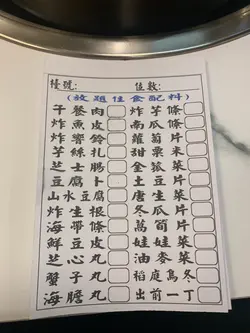 檯號: 位數:
(放題任食配料)
午餐肉 炸芋條
炸魚皮 南瓜條
炸響鈴 蘿蔔片
芋絲扎 甜粟米
芝士腸 金菇菜
豆腐卜 土豆片
山水豆腐 唐生菜
炸生根 冬瓜片
海帶 萬筍菜
鮮豆皮 娃娃菜
芝心丸 油麥菜
蟹子丸 稻庭烏冬
海膽丸 出前一丁